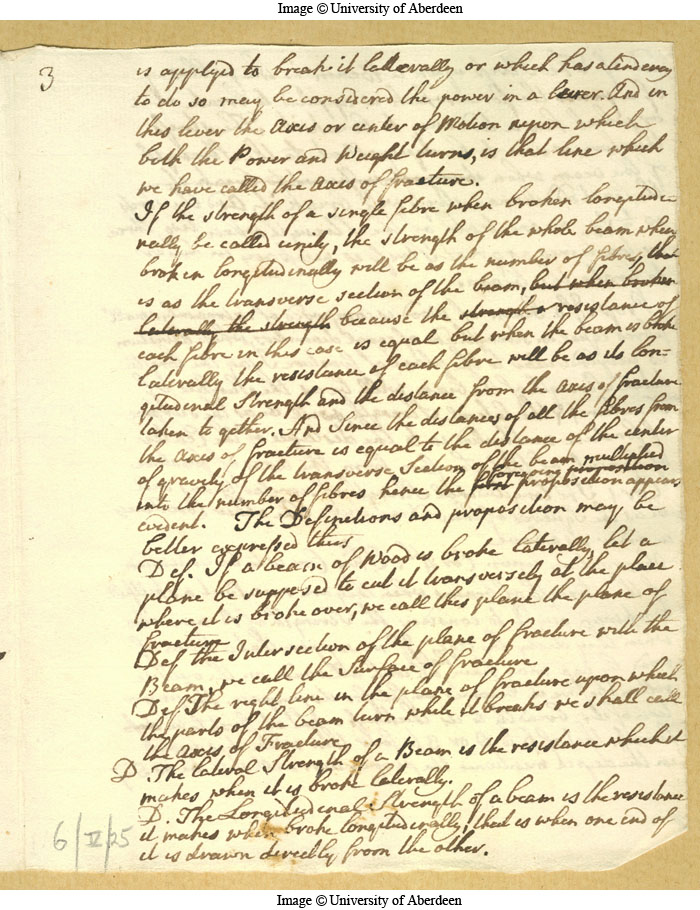 Image © University of Aberdeen
3
is applyed to break it laterally or which has a tendency
to do so may be considered the power in a lever. And in
this lever the Axis or center of Motion upon which
both the Power and Weight turns, is that line which
we have called the axis of fracture.
If the strength of a single fibre when broken longitudi-
nally be called unity, the strength of the whole beam when
broken longitudinally will be as the number of fibres, that
is as the transverse section of the beam, but when broken
laterally the strength because the strength or resistance of
each fibre in this case is equal but when the beam is broke
laterally the resistance of each fibre will be as its lon-
gitudinal Strength and the distance from the axis of fracture
taken together. And Since the distances of all the fibres from
the axis of fracture is equal to the distance of the center
of gravity of the transverse section of the beam multiplied
foregoing proposition
into the number of fibres hence the proposition appears
evident. The Definitions and proposition may be
better expressed thus
Def. If a beam of Wood is broke laterally, let a
plane be supposed to cut it transversely at the place
where it is broke over, we call this plane the plane of
fracture
Def the Intersection of the plane of fracture with the
Beam, we call the Surface of fracture
Def The right line in the plane of fracture upon which
the parts of the beam turn while it breaks we shall call
the axis of Fracture
D. The lateral Strength of a Beam is the resistance which it
makes when it is broke laterally.
D. The Longitudinal Strength of a beam is the resistance
it makes when broke longitudinally, that is when one end of
it is drawn directly from the other.
6/V/25
Image © University of Aberdeen